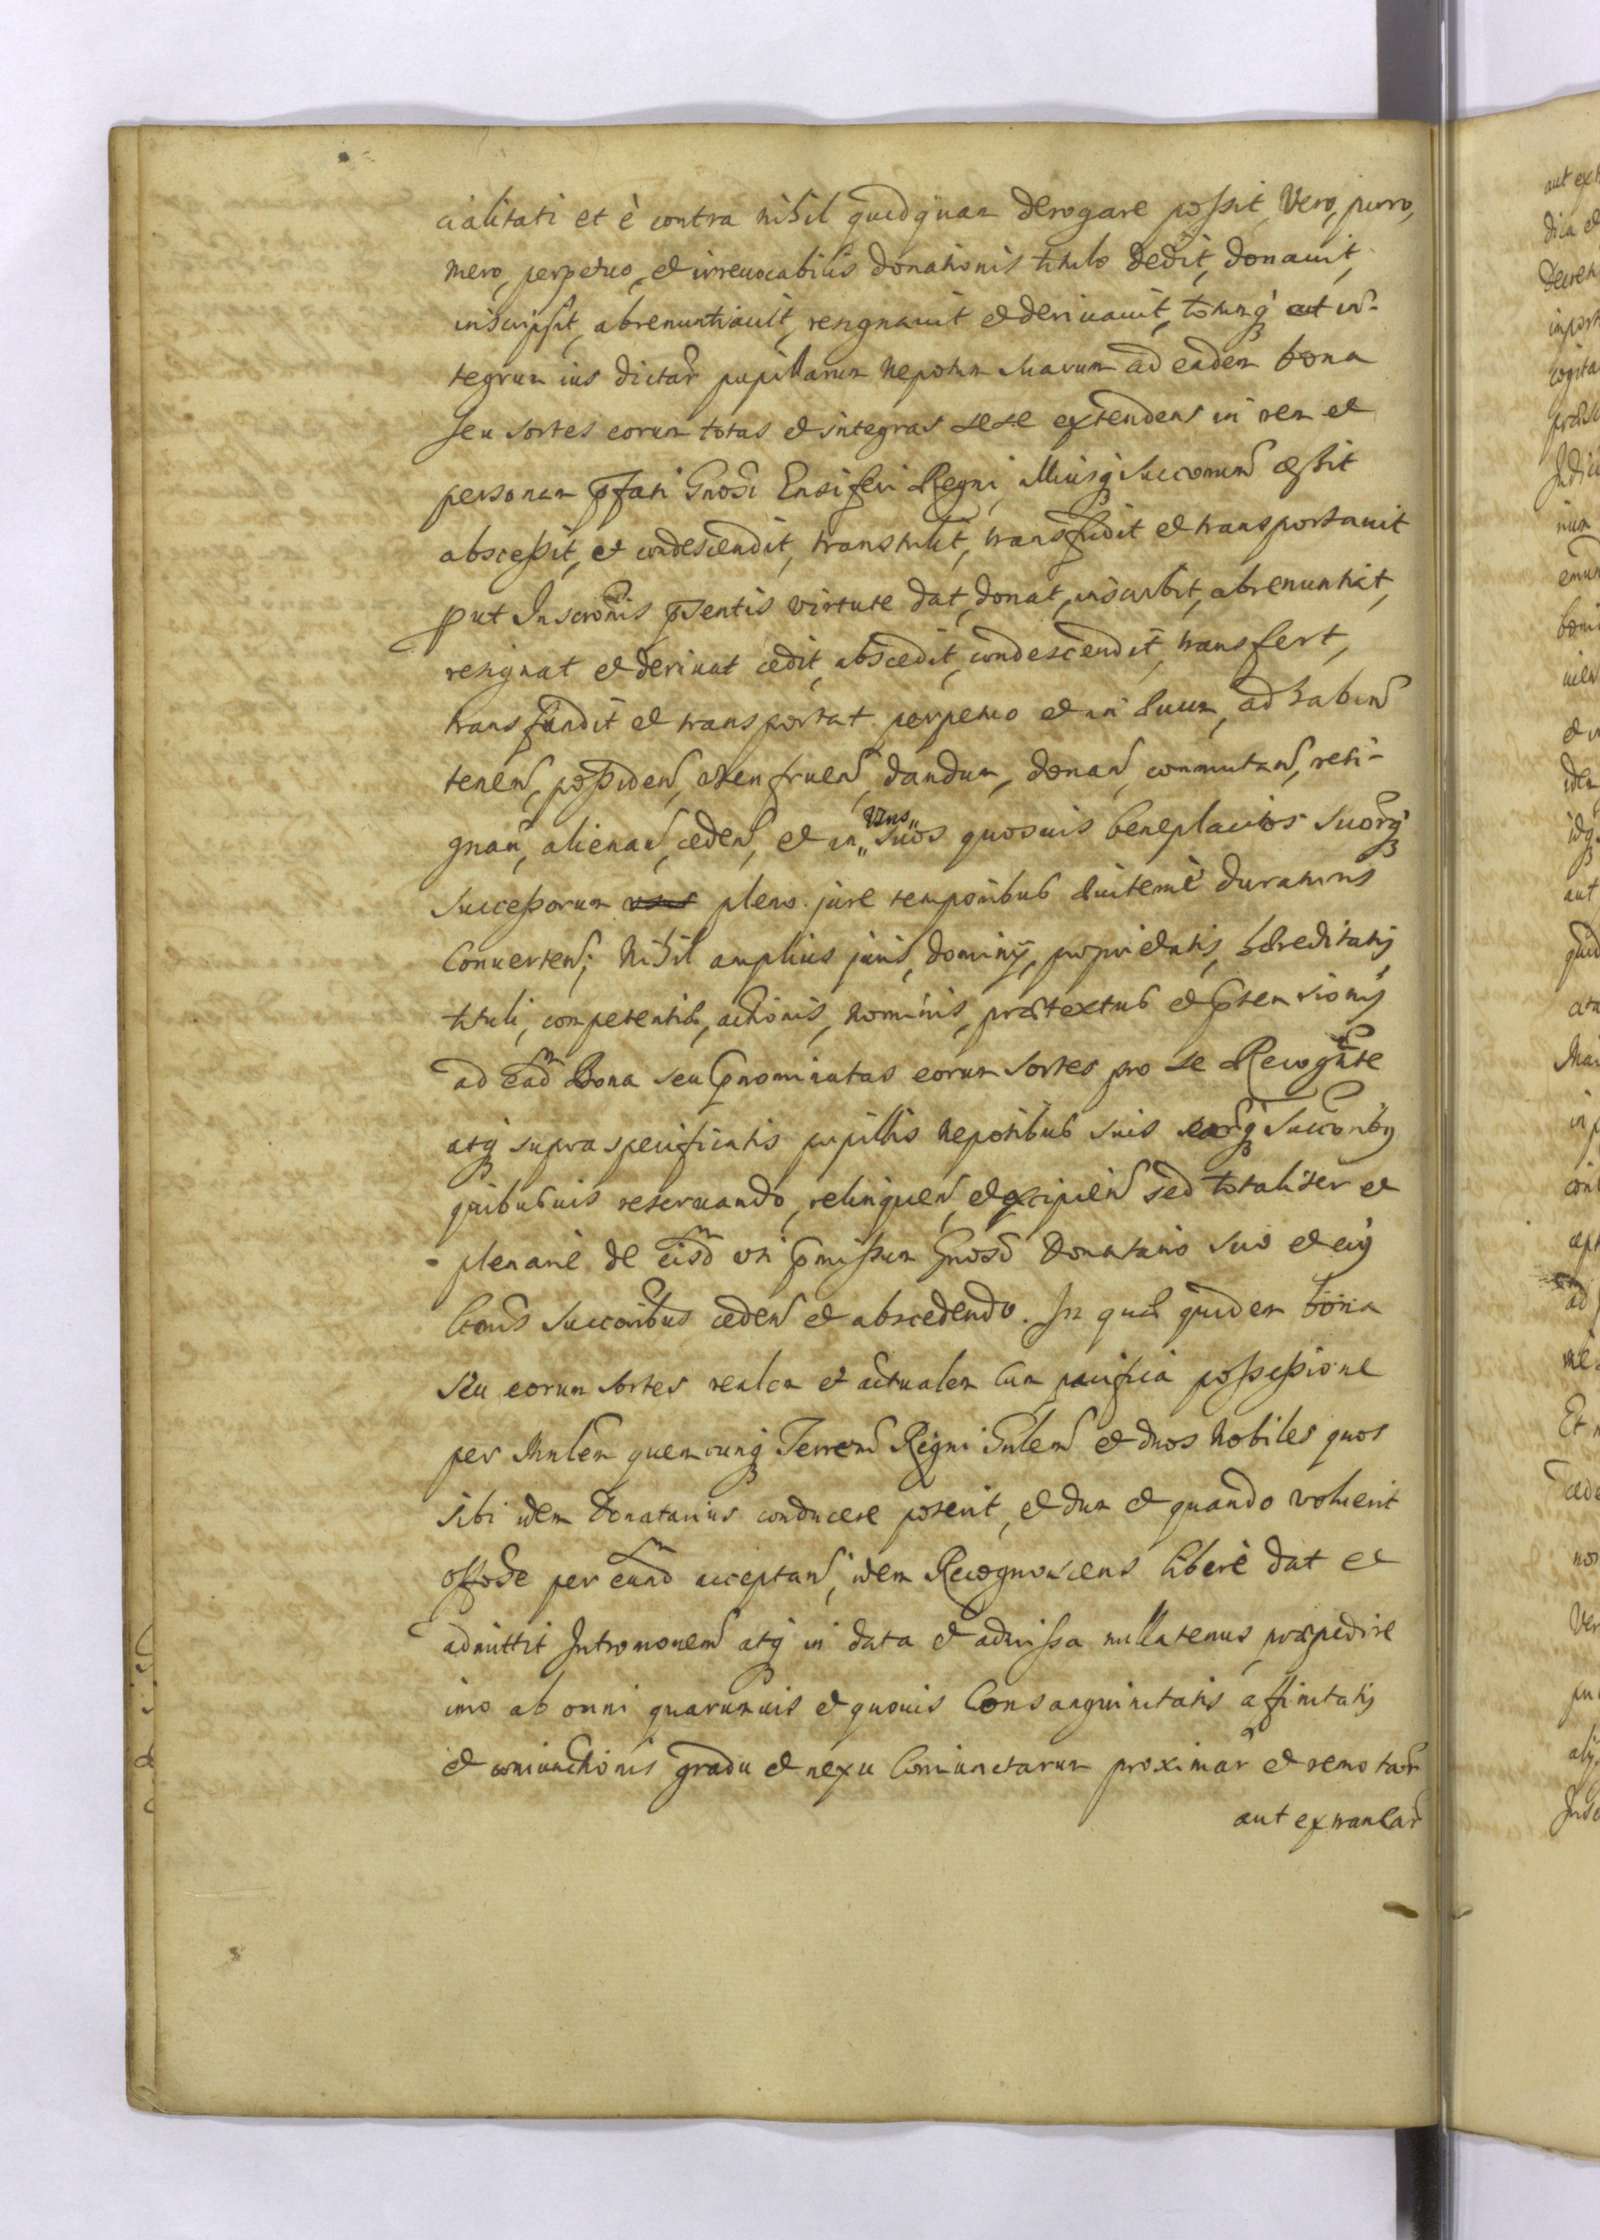 cialitati et è contra nihil quidquam derogare possit, Vero, puro,
mero, perpetuo, et irreuocabilis donationis titulo dedit, donauit,
inscripsit, abrenuntiauit, resignauit et deriuauit, totumq́ et in-
tegrum ius dictar pupillarum Nepotum suarum ad eadem bona
seu sortes eorum totas et integras sese extendens in rem et
personam pfati Gnosi Ensiferi Regni, illiusq́ Succorum cessit
abscessit, et condescendit, transtulit, transfudit et transportauit
put Inscronis psentis virtute dat, donat, inscribit, abrenuntiat,
resignat et deriuat cedit, abscedit, condescendit, transfert,
transfundit et transportat perpetuo et in æuum, ad haben
tenen, possiden, uten fruen, dandum, donan, commutan, resi-
gnan, alienan, ceden, et in „Vsus„ suos quosuis beneplacitos Suorq́
Successorum pleno jure temporibus æuiternè duraturis
Conuerten; Nihil amplius juris, dominij, proprietatis, hæreditatis
tituli, competentiæ, actionis, nominis, prætextus et ptensionis
ad eadm Bona seu pnominatas eorum sortes pro se Recognte
atq́ supra specificatis pupillis Nepotibus suis earq́ Succoribus
quibusuis reseruando, relinquen, et excipien sed totaliter et
plenariè de eisdm uti pmissum Gnoso Donatario suo et eius
Ltmis Succoribus ceden et abscedendo. In quæ quidem bona
seu eorum sortes realem et actualem cum pacifica possessione
per Mnlem quemcunq́ Terrem Regni Gnlem et duos Nobiles quos
sibi idem Donatarius conducere poterit, et dum et quando voluerit
per eundm acceptan, idem Recognoscens liberè dat et
admittit Intromonem atq́ in data et admissa nullatenus præpedire
imo ab omni quarumuis et quouis Consanguinitatis affinitatis
et coniunctionis gradu et nexu Coniunctarum proximar et remotar
aut extranear